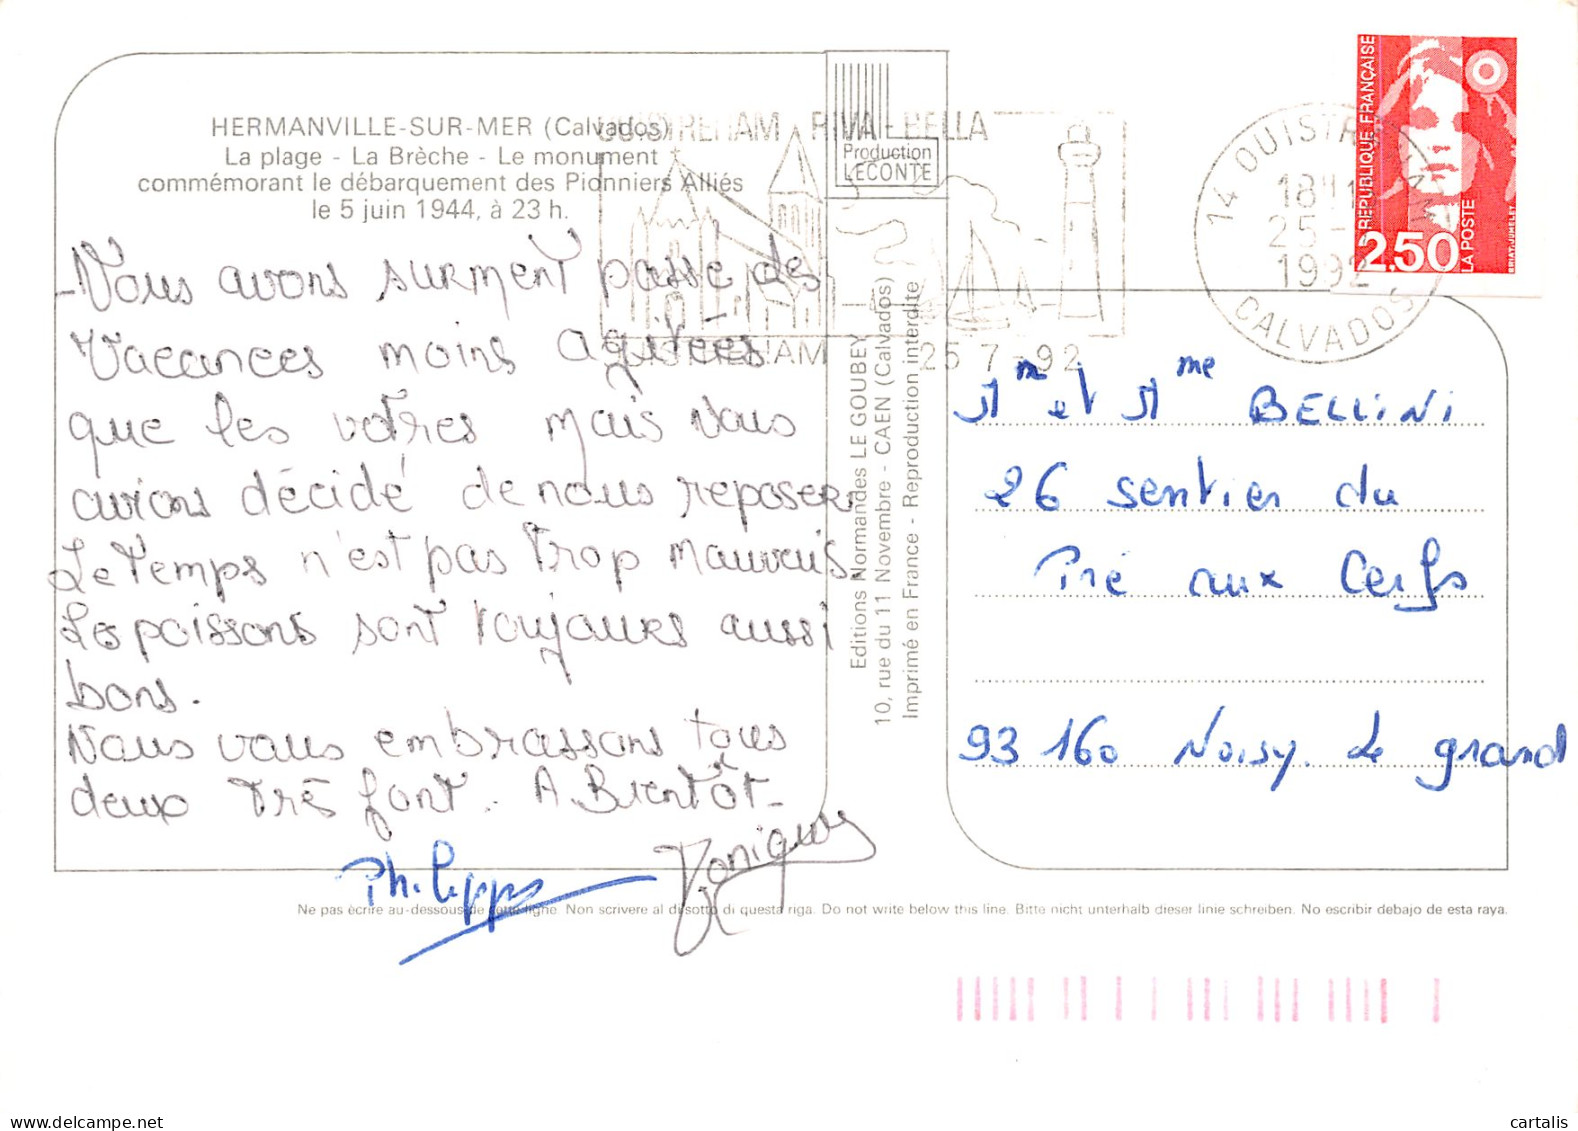 HERMANVILLE-SUR-MER (Calvados)
La plage - La Brèche - Le monument
commémorant le débarquement des Pionniers Alliés
le 5 juin 1944, à 23 h.
Nous avons surment passé des
Vacances moins agitées
que les votres mais nous
avions décidé de nous reposer.
Le Temps n'est pas Trop mauvais.
Les poissons sont toujours aussi
bons.
Nous vous embrassons tous
deux Très fort. A Bientôt-
Philippe
Ne pas écrire au-dessous de cette ligne. Non scrivere al disotto di questa riga. Do not write below this line. Bitte nicht unterhalb dieser linie schreiben. No escribir debajo de esta raya.
Production
LECONTE
OUISTREHAM RIVA-BELLA
OUISTREHAM 25 7-92
Editions Normandes LE GOUBEY
10, rue du 11 Novembre - CAEN (Calvados)
Imprimé en France - Reproduction interdite
14 OUISTREHAM
18H
25-
1992
CALVADOS
REPUBLIQUE FRANÇAISE
2,50
LA POSTE
BRIAT-JUMELET
Mr et Mme BELLINI
26 sentier du
Pré aux Cerfs
93 160 Noisy. le grand
cartalis